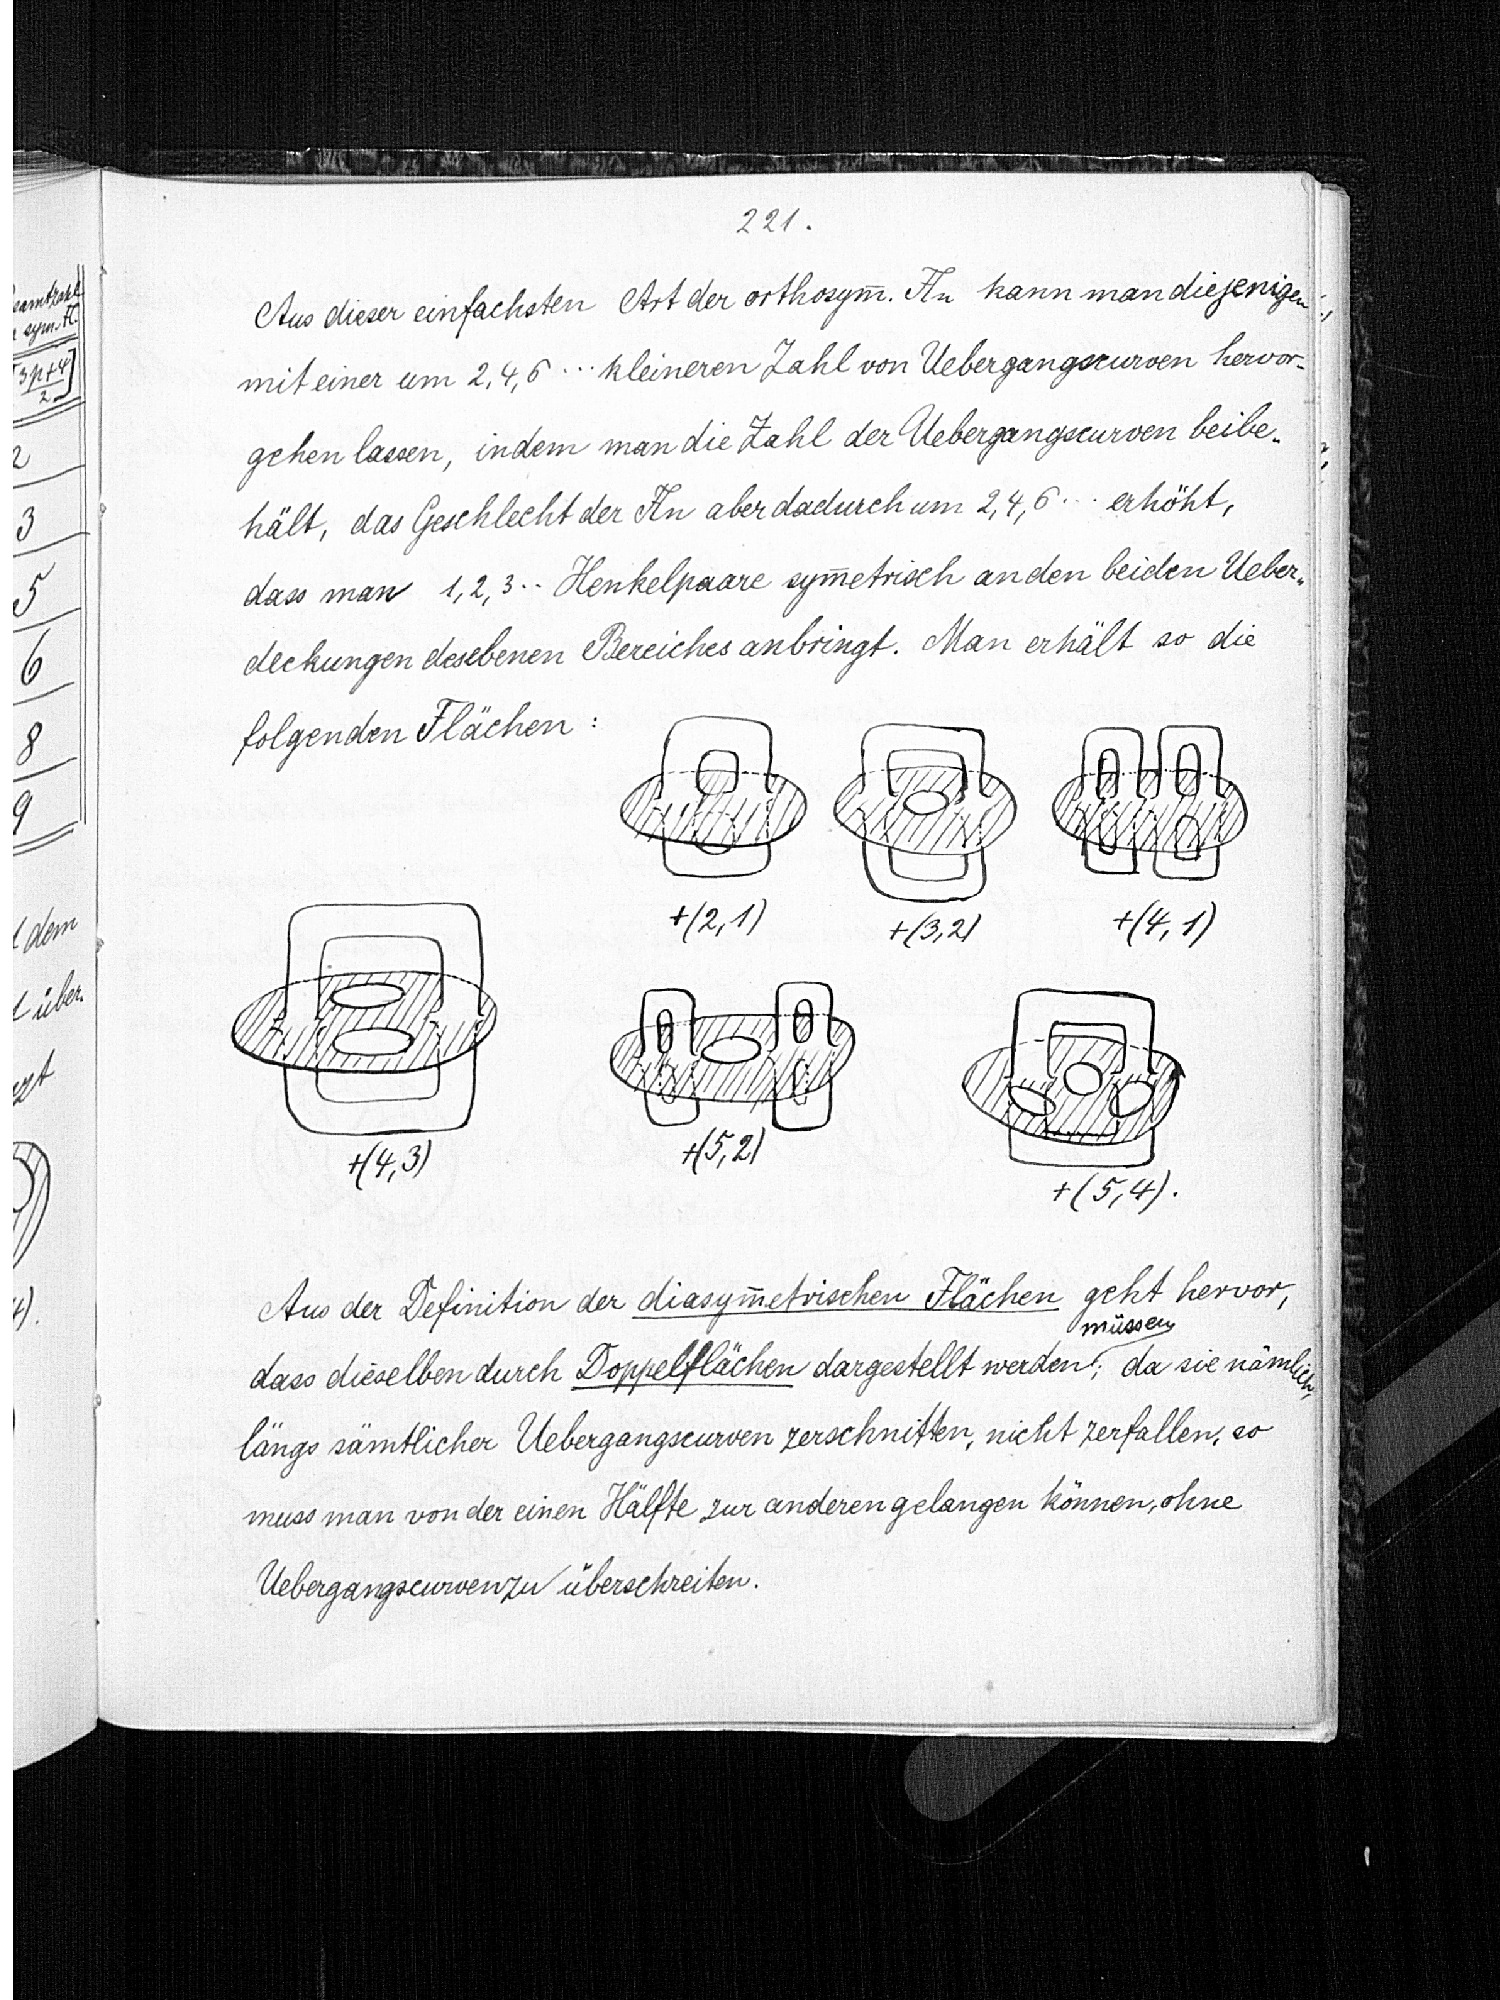 221.
Aus dieser einfachsten Art der orthosym̅. Fln kann man diejenigen
mit einer um 2, 4, 6 ... kleineren Zahl von Uebergangscurven hervor-
gehen lassen, indem man die Zahl der Uebergangscurven beibe-
hält, das Geschlecht der Fln aber dadurch um 2, 4, 6 ... erhöht,
dass man 1, 2, 3.. Henkelpaare sym̅etrisch an den beiden Ueber-
deckungen des ebenen Bereiches anbringt. Man erhält so die
folgenden Flächen:
+(2,1) +(3,2) +(4,1)
+(4,3) +(5,2) +(5,4).
Aus der Definition der diasym̅etrischen Flächen geht hervor,
müssen
dass dieselben durch Doppelflächen dargestellt werden; da sie nämlich,
längs sämtlicher Uebergangscurven zerschnitten, nicht zerfallen, so
muss man von der einen Hälfte zur anderen gelangen können, ohne
Uebergangscurven zu überschreiten.
3p+4
2
2
3
5
6
8
9
dem
über.